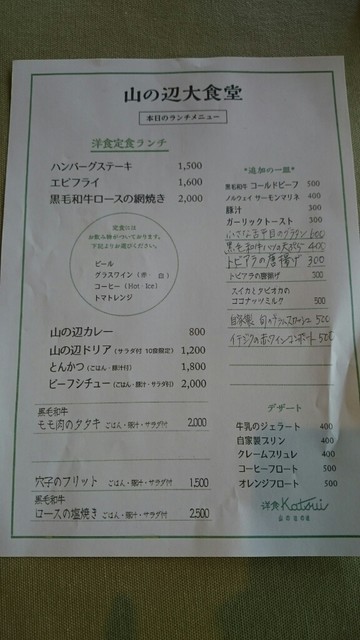 山の辺大食堂
本日のランチメニュー
洋食定食ランチ
ハンバーグステーキ 1,500
エビフライ 1,600
黒毛和牛ロースの網焼き 2,000
定食には
お飲み物がついております。
下記よりお選びください。
ビール
グラスワイン（赤・白）
コーヒー（Hot Ice）
トマトレンジ
山の辺カレー 800
山の辺ドリア（サラダ付 10食限定） 1,200
とんかつ（ごはん・豚汁付） 1,800
ビーフシチュー（ごはん・豚汁・サラダ付） 2,000
黒毛和牛
モモ肉のタタキ ごはん・豚汁・サラダ付 2,000
穴子のフリット ごはん・豚汁・サラダ付 1,500
黒毛和牛
ロースの塩焼き ごはん・豚汁・サラダ付 2,500
*追加の一皿*
黒毛和牛 コールドビーフ 500
ノルウェイ サーモンマリネ 400
豚汁 300
ガーリックトースト 300
小さな舌平目のグラタン 600
黒毛和牛ハツの天ぷら 400
トビアラの唐揚げ 300
トビアラの唐揚げ 300
スイカとタピオカの
ココナッツミルク 500
自家製 旬の 500
イチジクの赤ワインコンポート 500
デザート
牛乳のジェラート 400
自家製プリン 400
クレームブリュレ 400
コーヒーフロート 500
オレンジフロート 500
洋食 Katsui
山の辺の道